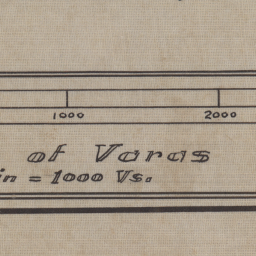 1000 2000
of Varas
in = 1000 Vs.